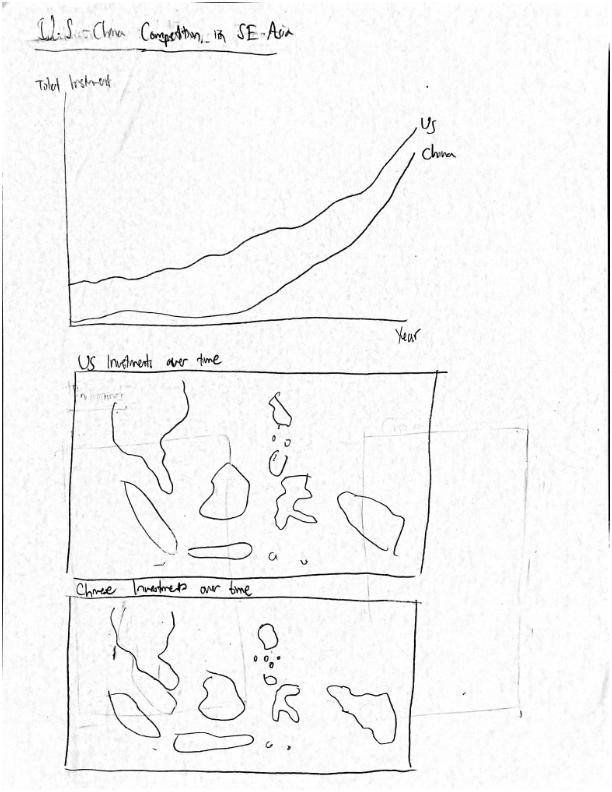 U.S.-China Competition in SE-Asia
Total
US
China
Year
US Investments over time
Chinese Investments over time